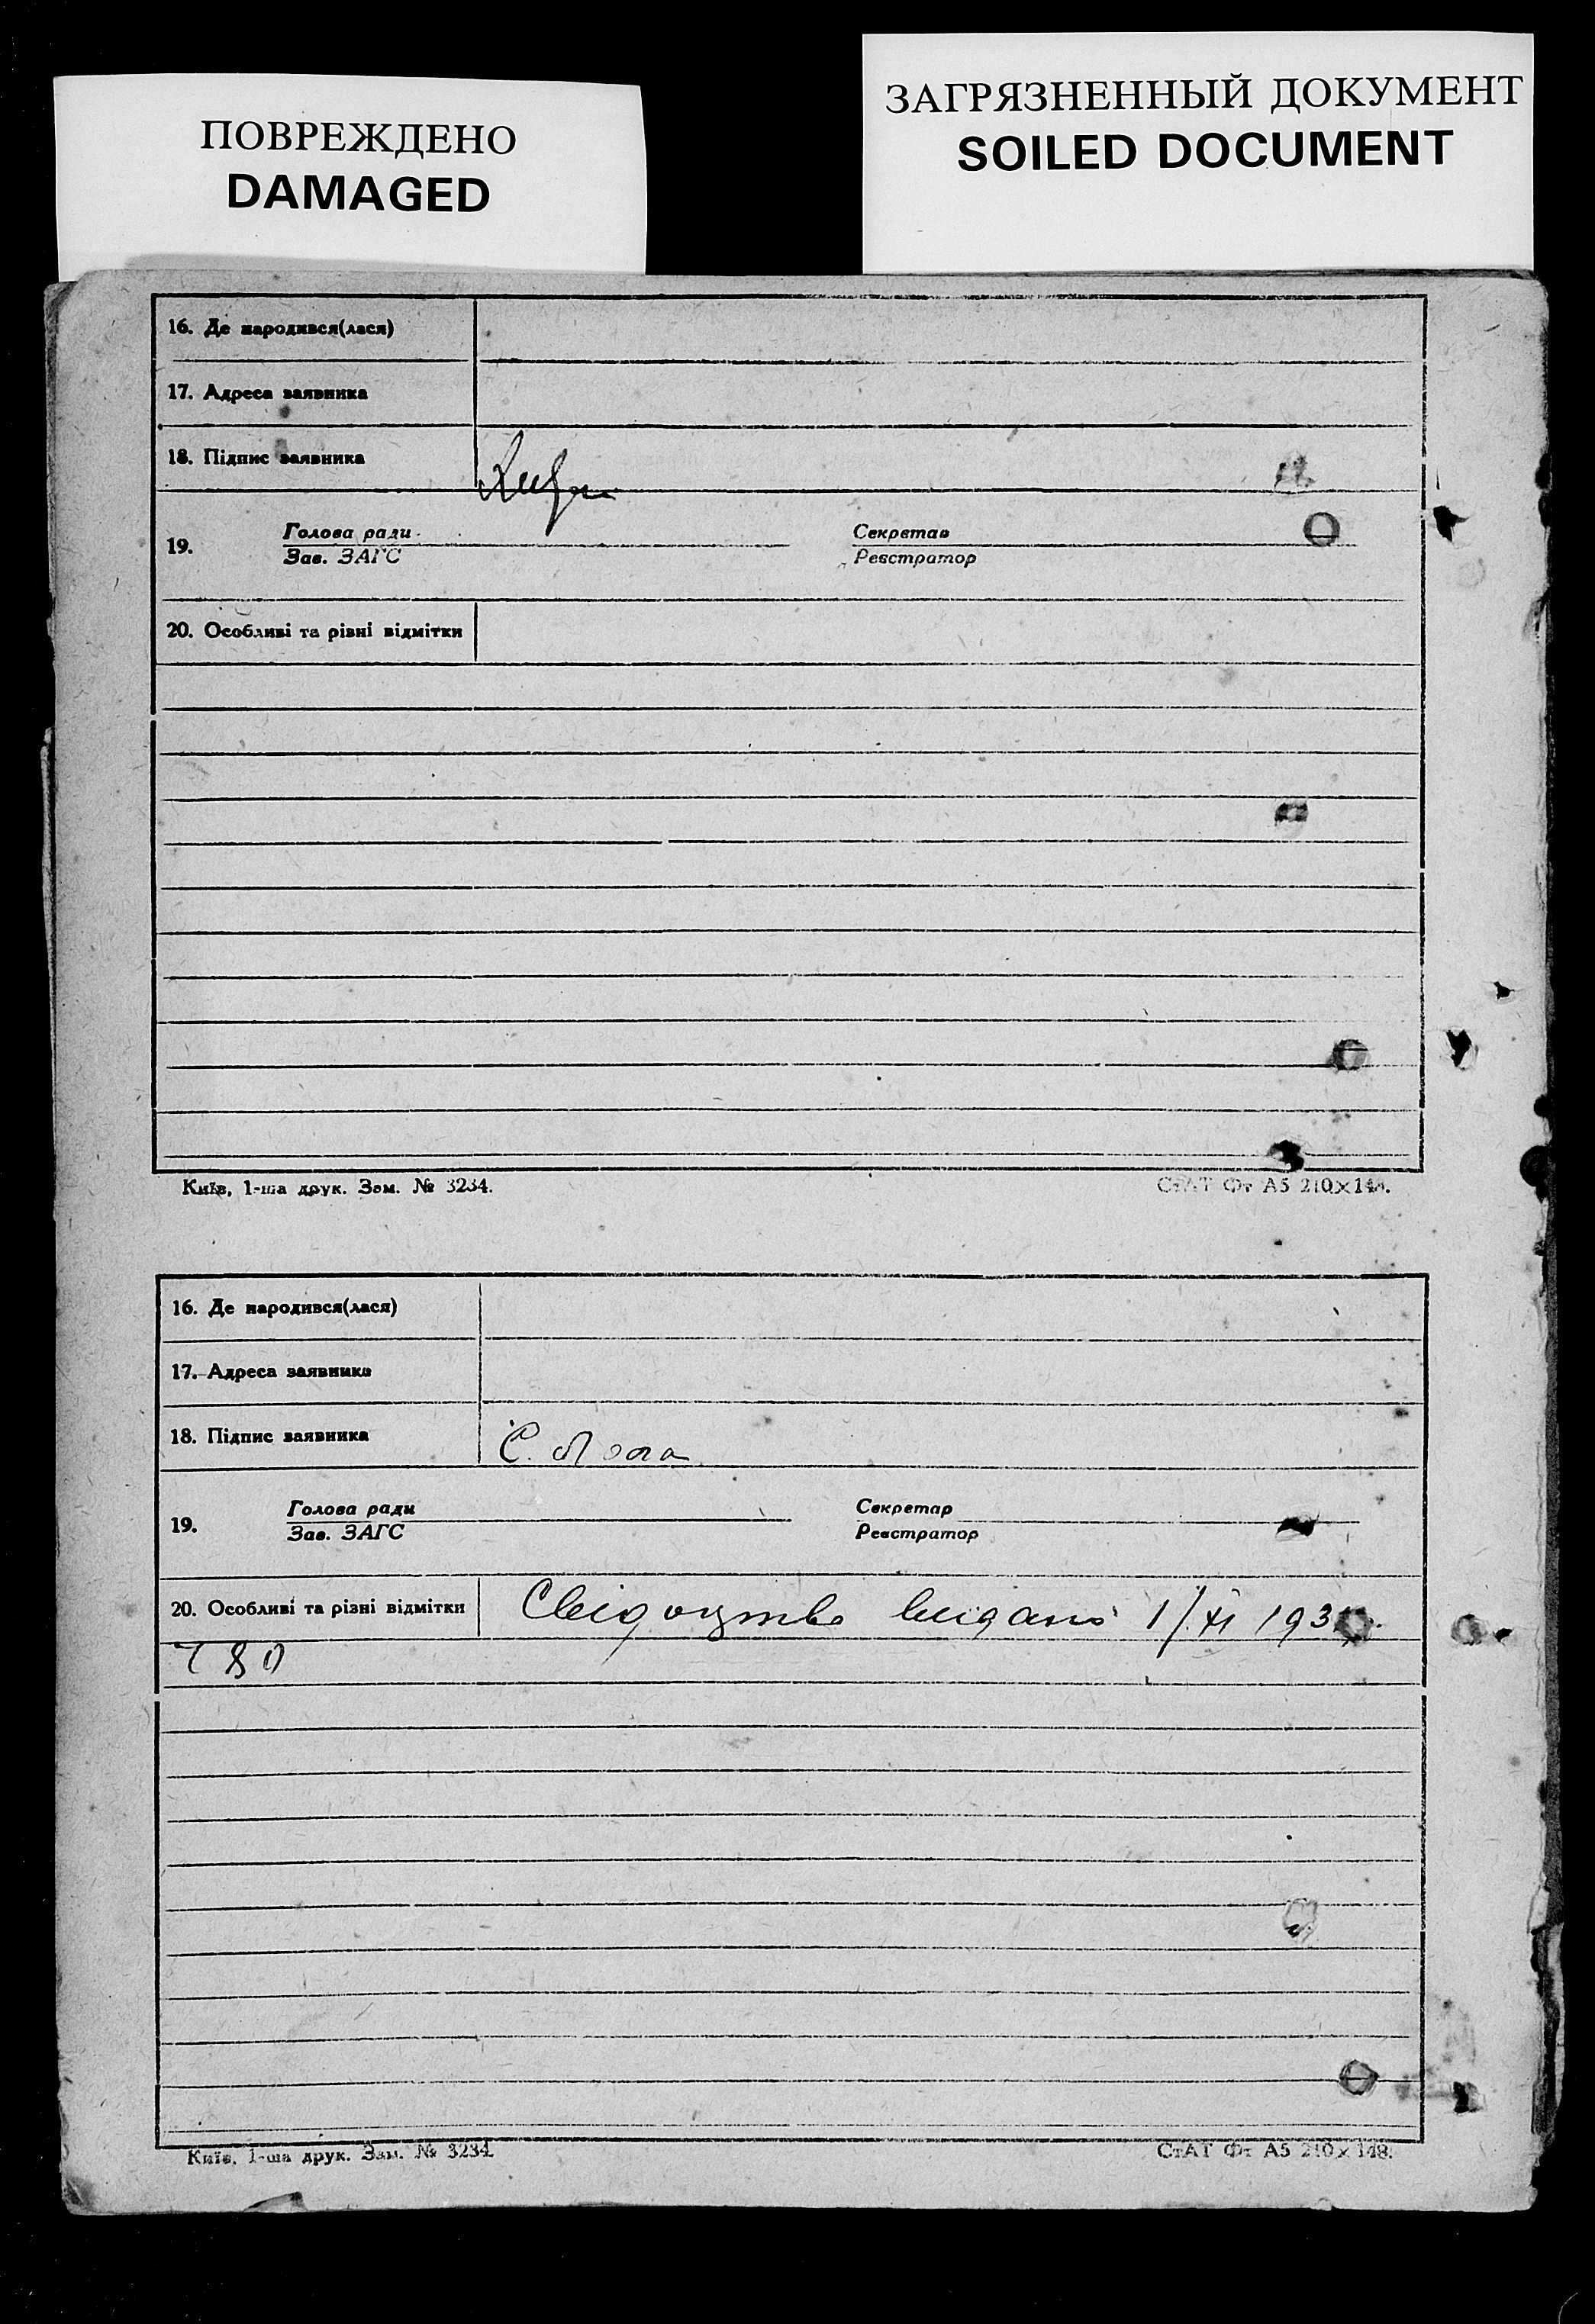 ПОВРЕЖДЕНО
DAMAGED
ЗАГРЯЗНЕННЫЙ ДОКУМЕНТ
SOILED DOCUMENT
16. Де народився(лася)
17. Адреса заявника
18. Підпис заявника
19. Голова ради Секретар
Зав. ЗАГС Реєстратор
20. Особливі та різні відмітки
Київ, 1-ша друк. Зам. № 3234. СтАТ Фт А5 210×148.
16. Де народився(лася)
17. Адреса заявника
18. Підпис заявника С.
19. Голова ради Секретар
Зав. ЗАГС Реєстратор
20. Особливі та різні відмітки Свідоцтво видано 1/XI 193
780
Київ, 1-ша друк. Зам. № 3234. СтАТ Фт А5 210×148.